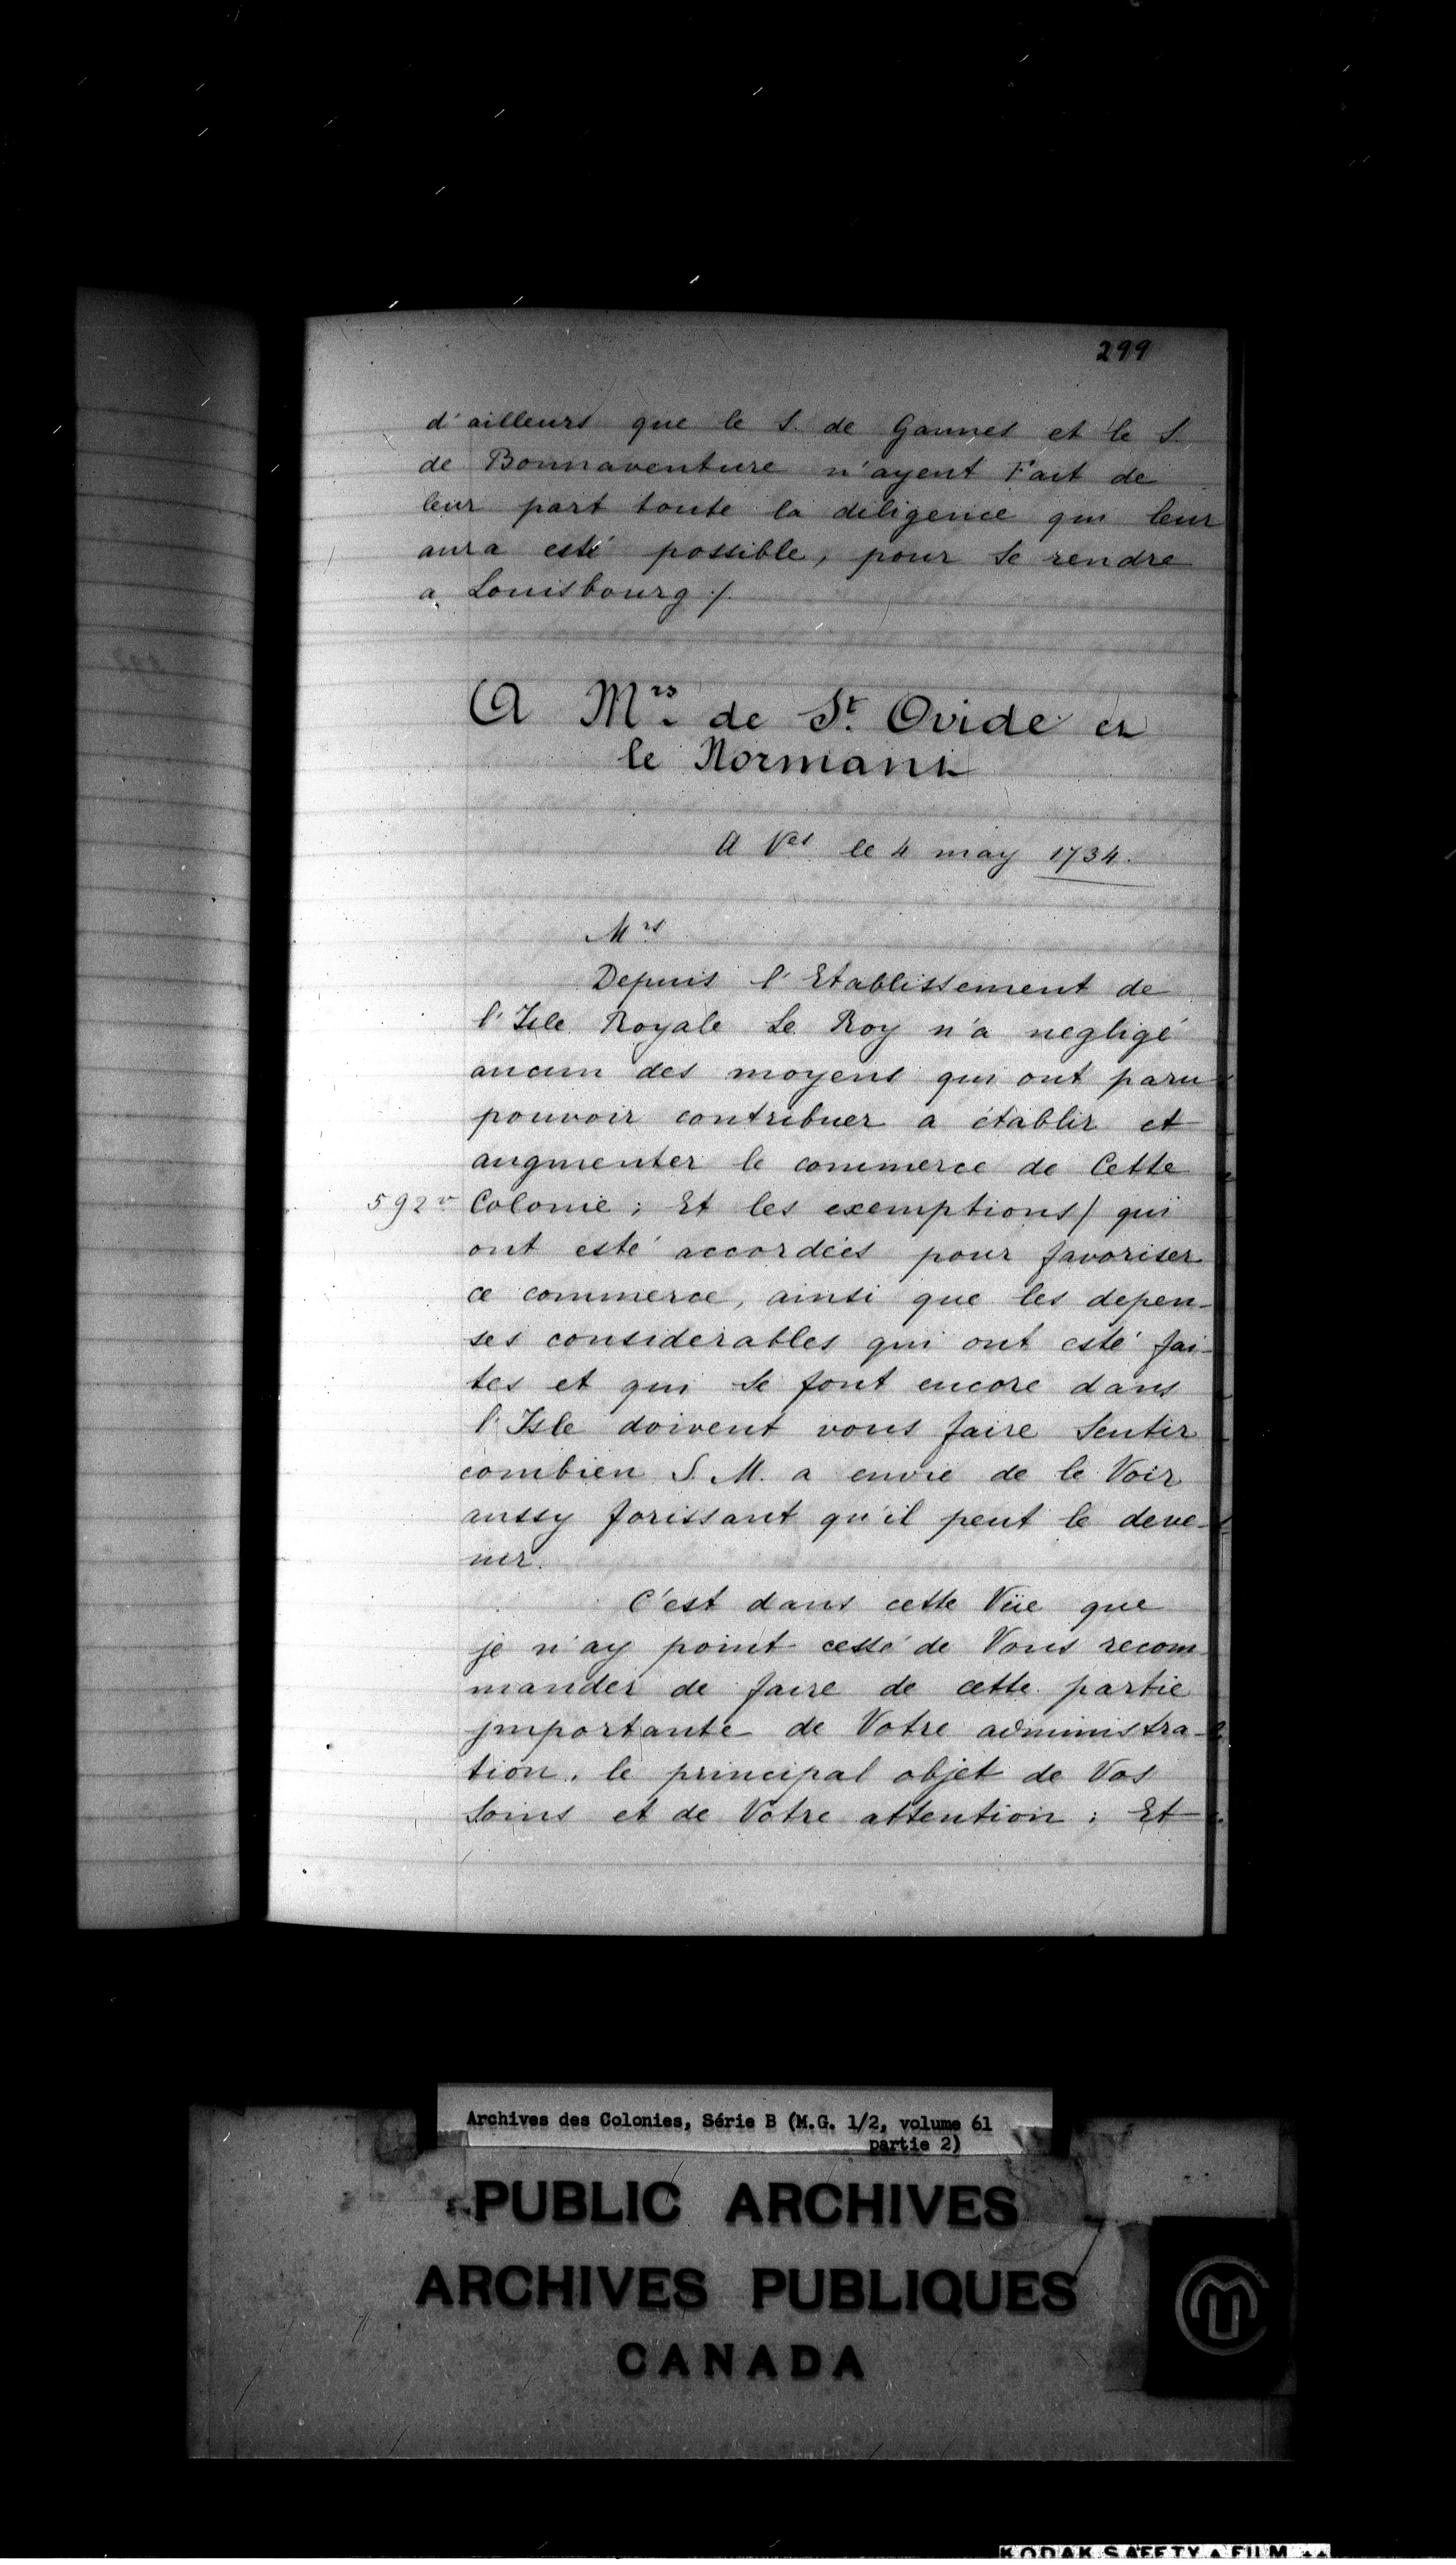 299
d'ailleurs que le S. de Gannes et le S.
de Bonnaventure n'ayent Fait de
leur part toute la diligence qui leur
aura esté possible, pour se rendre
a Louisbourg /.
A Mrs de St. Ovide et
le Normant
A Ves le 4 may 1734.
Mrs
Depuis l'Etablissement de
l'Isle Royale Le Roy n'a negligé
aucun des moyens qui ont paru
pouvoir contribuer a établir et
augmenter le commerce de Cette
592 vo Colonie ; Et les exemptions / qui
ont esté accordées pour favoriser
ce commerce, ainsi que les depen-
ses considerables qui ont esté fai-
tes et qui se font encore dans
l'Isle doivent vous faire Sentir
combien S. M. a envie de le Voir
aussy forissant qu'il peut le deve-
nir.
C'est dans cette Vüe que
je n'ay point cessé de Vous recom
mander de faire de cette partie
jmportante de Votre administra-
tion, le principal objet de Vos
Soins et de Votre attention ; Et
Archives des Colonies, Série B (M.G. 1/2, volume 61
partie 2)
PUBLIC ARCHIVES
ARCHIVES PUBLIQUES
CANADA
KODAK SAFETY FILM